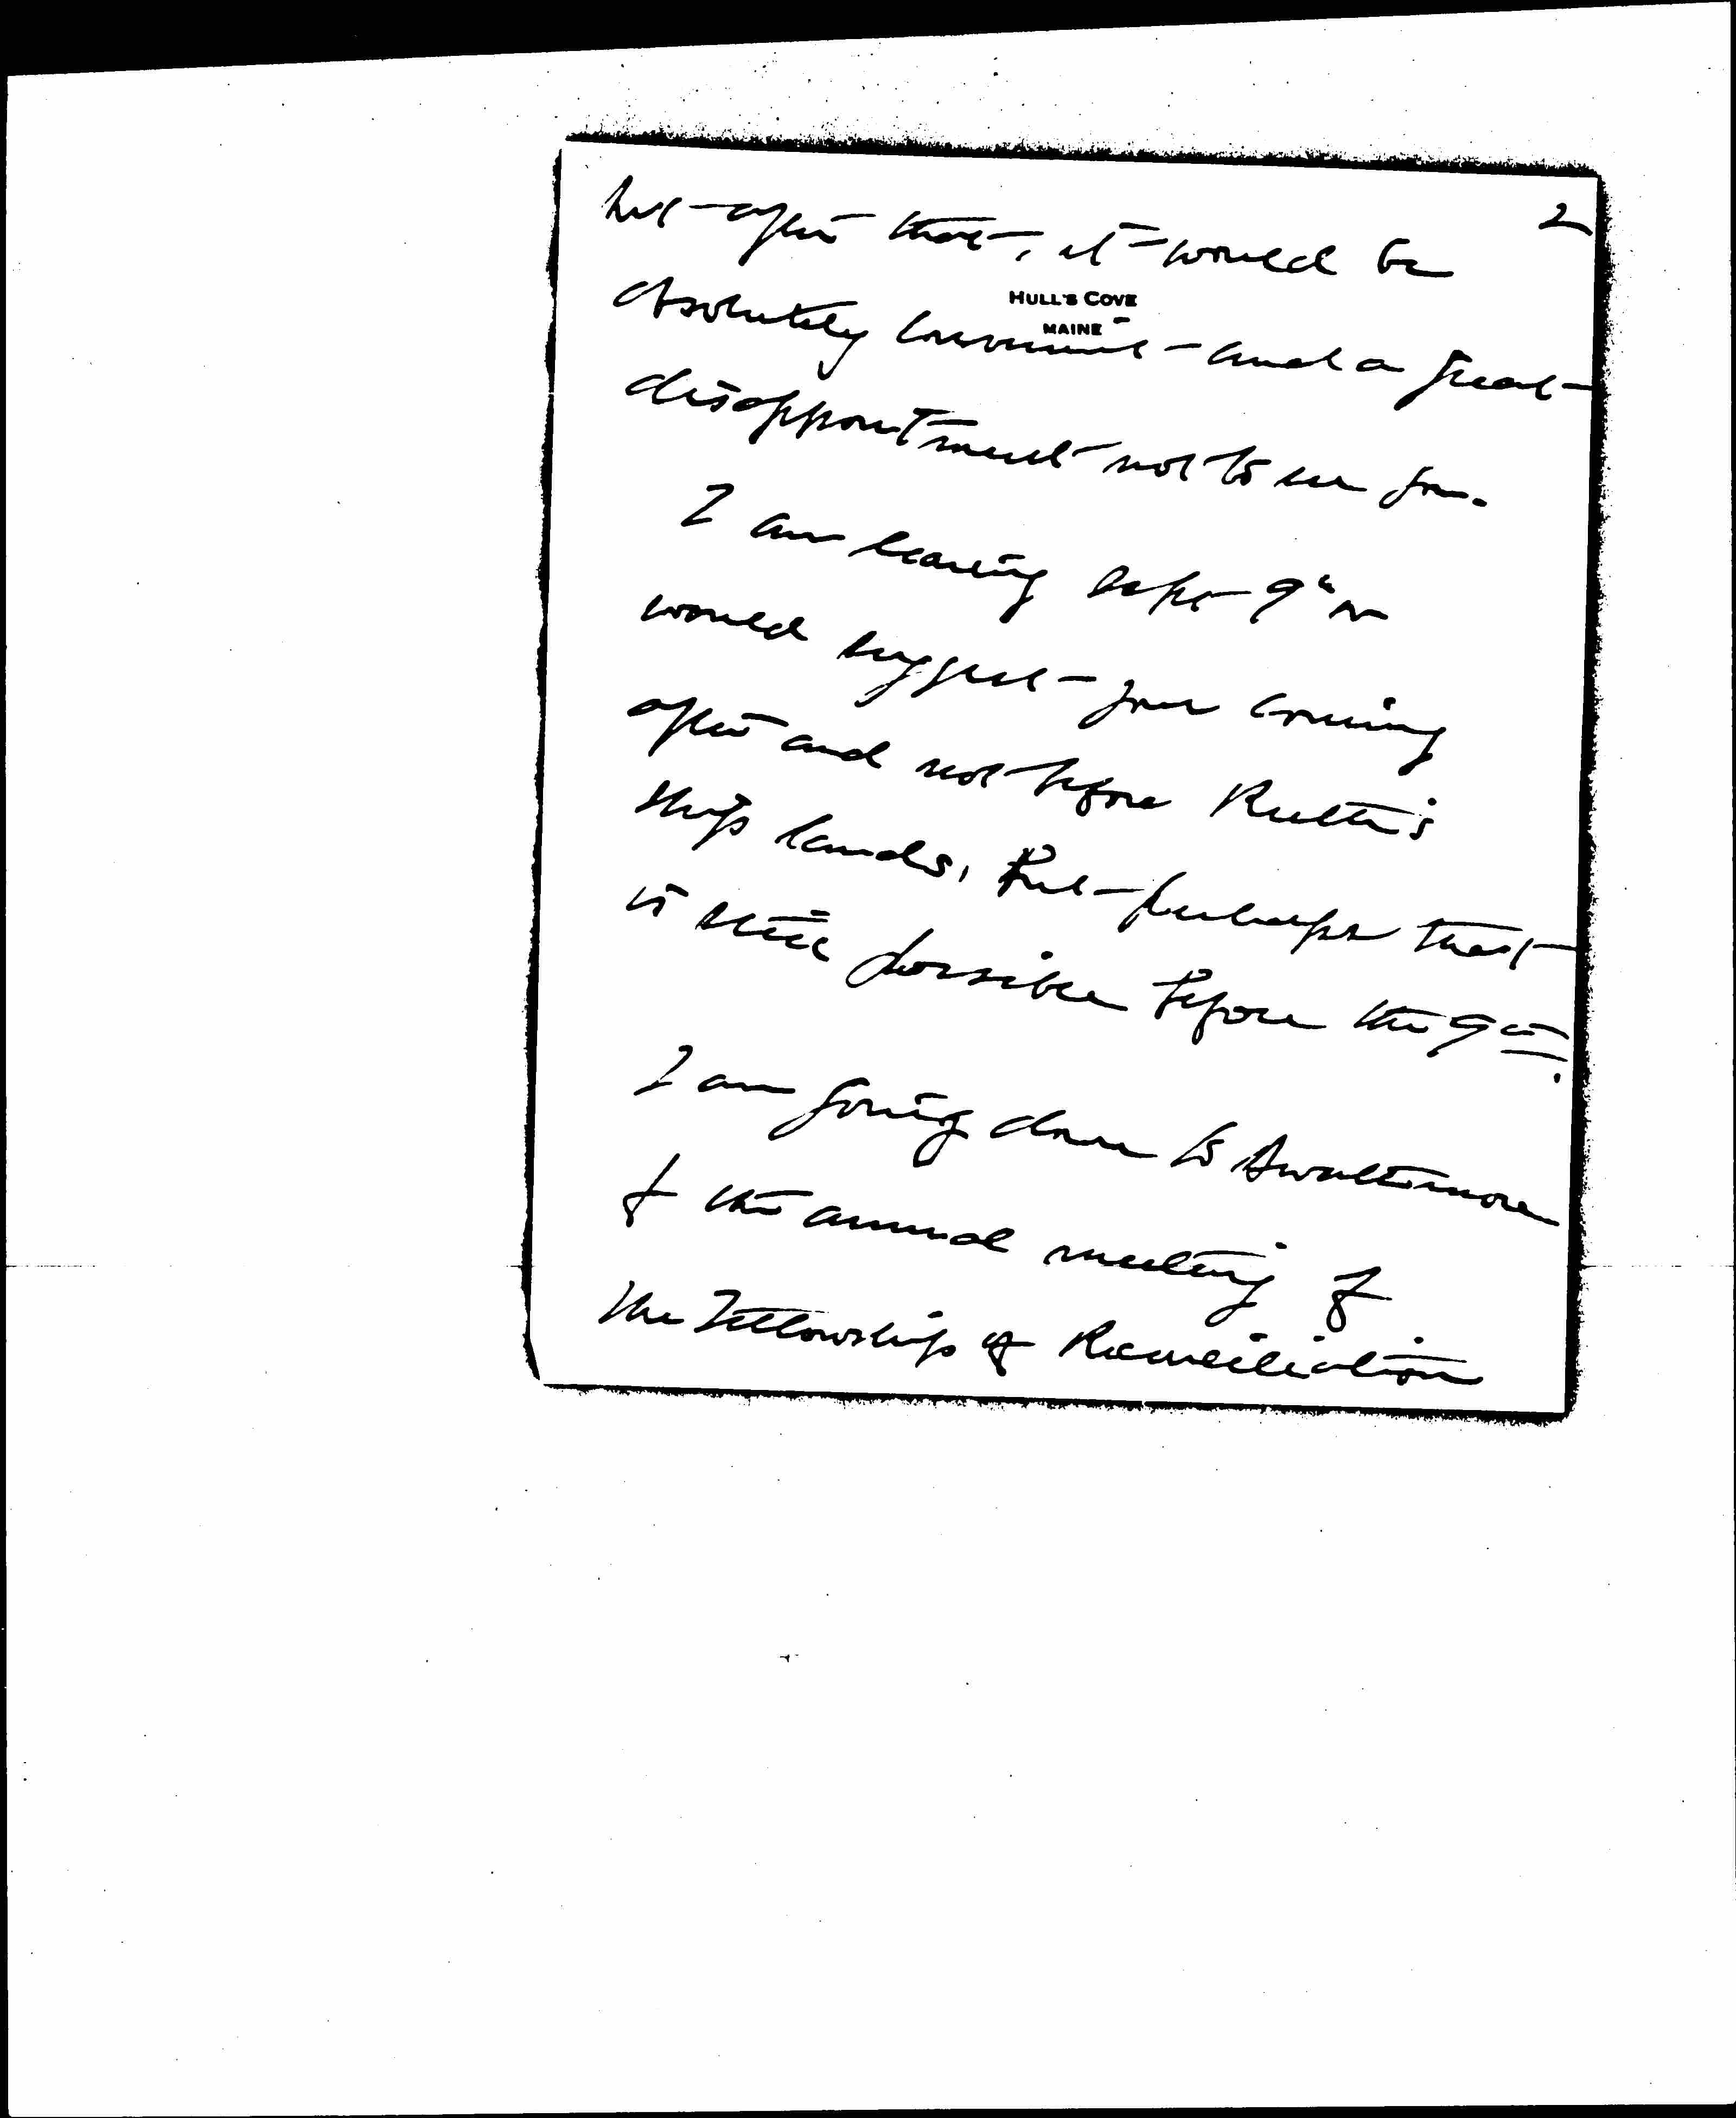 2
but after that, it would be
HULL'S COVE
MAINE
absolutely convenient and a great
disappointment not to see you.
I am leaving Sept 9th or
would suggest your coming
after and not before Ruth's
ship lands, but perhaps that
is still possible before the 9th.
I am going down to Swarthmore
& the annual meeting of
the Fellowship of Reconciliation